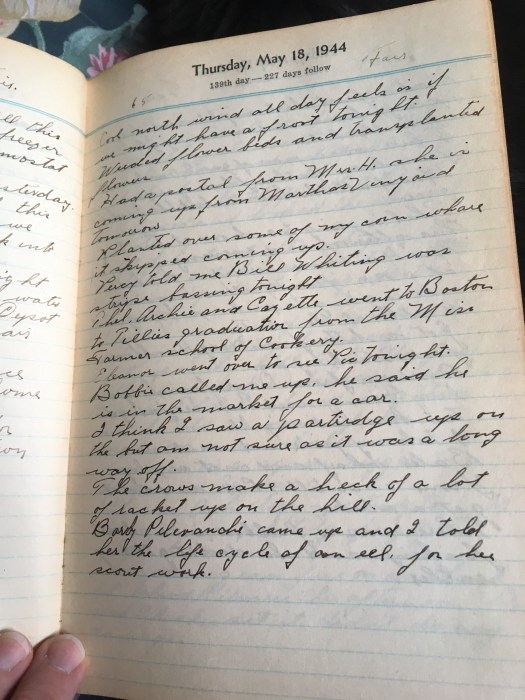 is.
ll this
freezer
mostat
sterday.
this
we
k out
ight
wate
ce
ome
or
Thursday, May 18, 1944
139th day—227 days follow
65
Fair
Cool north wind all day feels as if
we might have a frost tonight.
Weeded flower beds and transplanted
flowers
Had a postal from Mrs. H. she is
coming up from Marthas Vinyard
tomorow
Planted over some of my corn whare
it skipped coming up.
Percy told me Bill Whiting was
stripe bassing tonight
Phil. Archie and Cazette went to Boston
to Tillies graduation from the Miss
Farmer school of Cookery.
Eleanor went over to see Pic tonight.
Bobbie called me up. he said he
is in the market for a car.
I think I saw a partirdge up on
the but am not sure as it was a long
way off.
The crows make a heck of a lot
of racket up on the hill.
came up and I told
her the life cycle of an eel. for her
scout work.